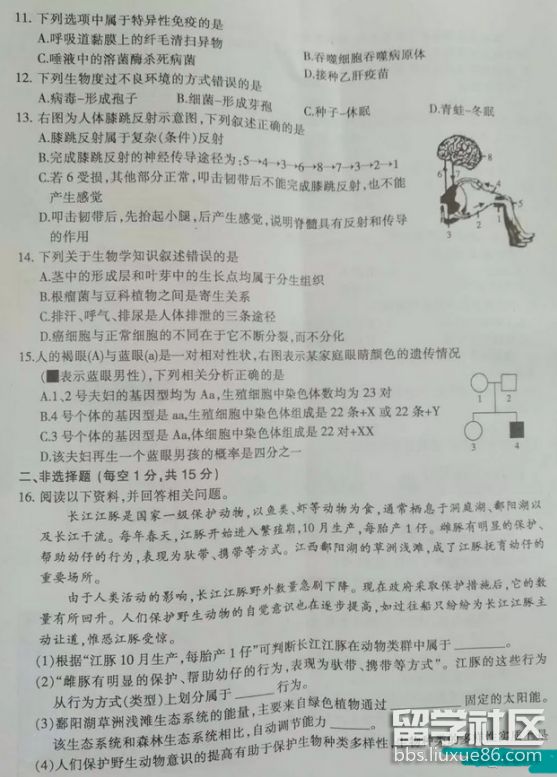 11. 下列选项中属于特异性免疫的是
A.呼吸道黏膜上的纤毛清扫异物
B.吞噬细胞吞噬病原体
C.唾液中的溶菌酶杀死病菌
D.接种乙肝疫苗
12. 下列生物度过不良环境的方式错误的是
A.病毒–形成孢子 B.细菌–形成芽孢 C.种子–休眠 D.青蛙–冬眠
13. 右图为人体膝跳反射示意图,下列叙述正确的是
A.膝跳反射属于复杂(条件)反射
B.完成膝跳反射的神经传导途径为:5→4→3→6→8→7→3→2→1
C.若6受损,其他部分正常,叩击韧带后不能完成膝跳反射,也不能
产生感觉
D.叩击韧带后,先抬起小腿,后产生感觉,说明脊髓具有反射和传导
的作用
14. 下列关于生物学知识叙述错误的是
A.茎中的形成层和叶芽中的生长点均属于分生组织
B.根瘤菌与豆科植物之间是寄生关系
C.排汗、呼气、排尿是人体排泄的三条途径
D.癌细胞与正常细胞的不同在于它不断分裂,而不分化
15.人的褐眼(A)与蓝眼(a)是一对相对性状,右图表示某家庭眼睛颜色的遗传情况
(■表示蓝眼男性),下列相关分析正确的是
A.1、2号夫妇的基因型均为Aa,生殖细胞中染色体数均为23对
B.4号个体的基因型是aa,生殖细胞中染色体组成是22条+X或22条+Y
C.3号个体的基因型是Aa,体细胞中染色体组成是22对+XX
D.该夫妇再生一个蓝眼男孩的概率是四分之一
二、非选择题(每空1分,共15分)
16. 阅读以下资料,并回答相关问题。
长江江豚是国家一级保护动物,以鱼类、虾等动物为食,通常栖息于洞庭湖、鄱阳湖以
及长江干流。每年春天,江豚开始进入繁殖期,10月生产,每胎产1仔。雌豚有明显的保护、
帮助幼仔的行为,表现为驮带、携带等方式。江西鄱阳湖的草洲浅滩,成了江豚抚育幼仔的
重要场所。
由于人类活动的影响,长江江豚野外数量急剧下降。现在政府采取保护措施后,它的数
量有所回升。人们保护野生动物的自觉意识也在逐步提高,如过往船只纷纷为长江江豚主
动让道,惟恐江豚受惊。
(1)根据“江豚10月生产,每胎产1仔”可判断长江江豚在动物类群中属于______。
(2)“雌豚有明显的保护、帮助幼仔的行为,表现为驮带、携带等方式”。江豚的这些行为
从行为方式(类型)上划分属于______行为。
(3)鄱阳湖草洲浅滩生态系统的能量,主要来自绿色植物通过______固定的太阳能。
该生态系统和森林生态系统相比,自动调节能力______。
(4)人们保护野生动物意识的提高有助于保护生物种类多样性
留学社区
bbs.liuxue86.com